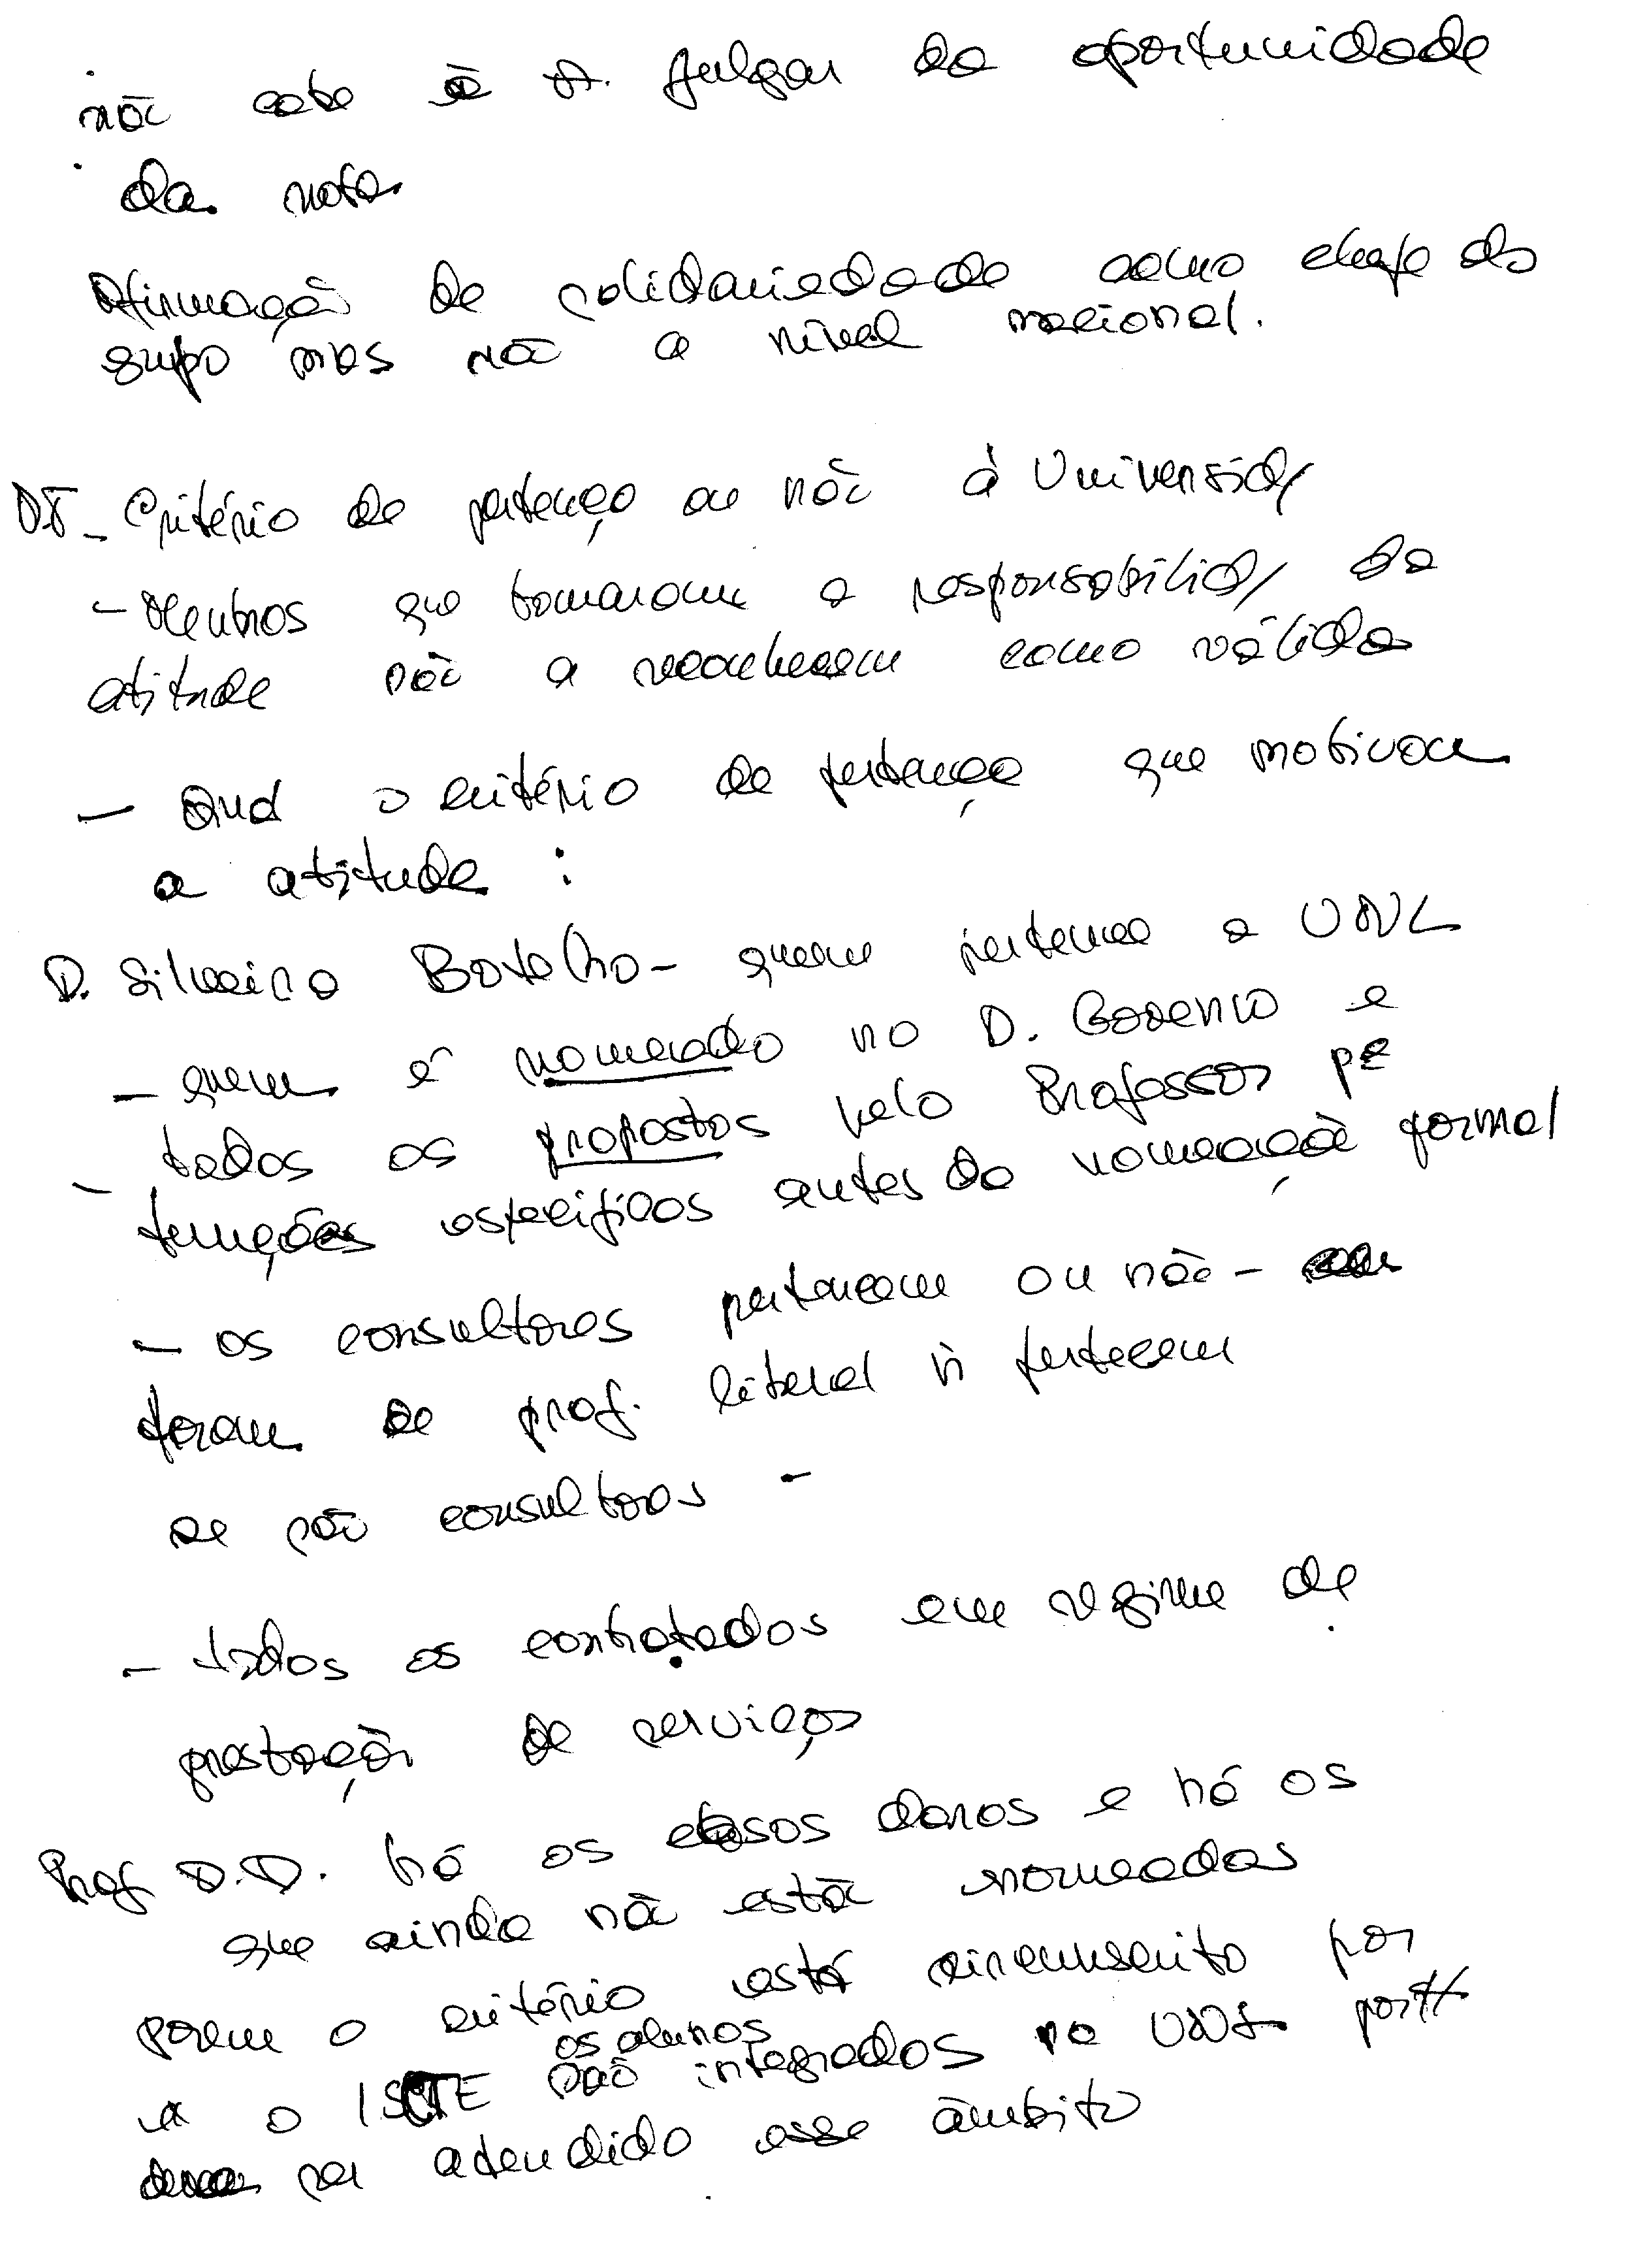 não cabe à A. julgar da oportunidade
da nota
Afirmação de solidariedade como chefe do
grupo mas não a nível nacional.
DF - Critério de pertença ou não à Universid/
- Membros que tomaram a responsabilid/ da
atitude não a reconhecem como válida
- Qual o critério de pertença que motivou
a atitude :
D. Silveira Botelho - quem pertence a UNL
- quem é nomeado no D. Governo e
- todos os propostos pelo Professor pa
funções específicas antes da nomeação formal
- os consultores pertencem ou não -
foram de prof. liberal ñ pertecem
se são consultores -
- todos os contratados em regime de
prestação de serviços
Prof D.D. há os casos claros e há os
que ainda não estão nomeados
porem o critério está circunscrito por
os alunos
o ISCTE são integrados na UNL port/
ser atendido esse âmbito